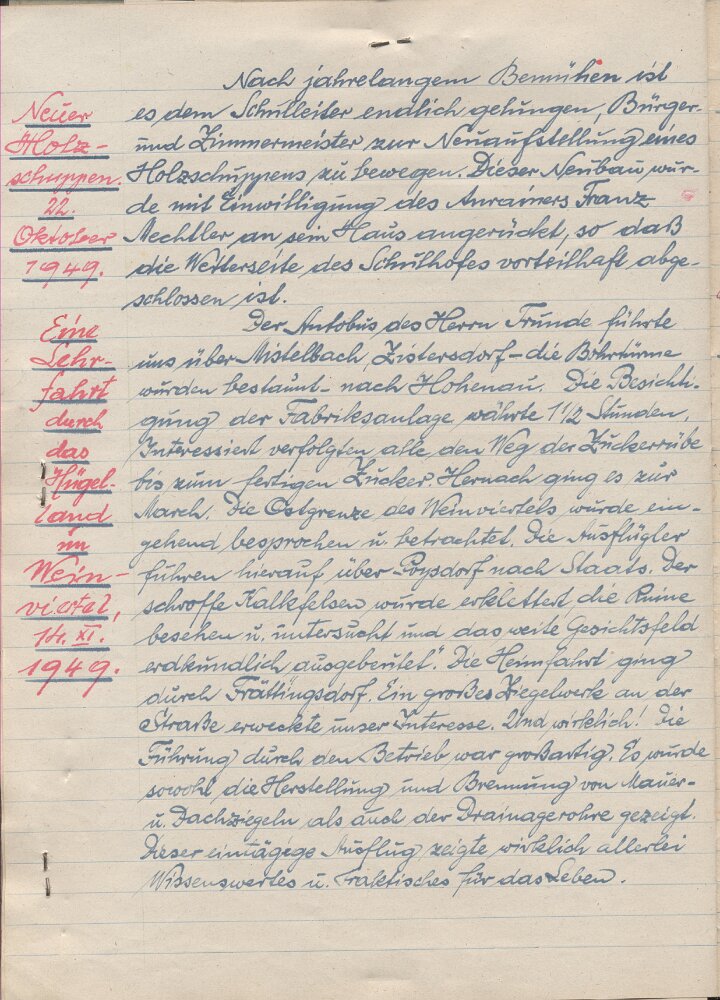 Neuer
Holz-
schuppen.
22.
Oktober
1949.
Nach jahrelangem Bemühen ist
es dem Schulleiter endlich gelungen, Bürger-
und Zimmermeister zur Neuaufstellung eines
Holzschuppens zu bewegen. Dieser Neubau wur-
de mit Einwilligung des Anrainers Franz
Mechtler an sein Haus angerückt, so daß
die Wetterseite des Schulhofes vorteilhaft abge-
schlossen ist.
Eine
Lehr-
fahrt
durch
das
Hügel-
land
im
Wein-
viertel,
14. XI.
1949.
Der Autobus des Herrn Frunde führte
uns über Mistelbach, Zistersdorf - die Bohrtürme
wurden bestaunt - nach Hohenau. Die Besichti-
gung der Fabriksanlage währte 1 1/2 Stunden.
Interessiert verfolgten alle den Weg der Zuckerrübe
bis zum fertigen Zucker. Hernach ging es zur
March. Die Ostgrenze des Weinviertels wurde ein-
gehend besprochen u. betrachtet. Die Ausflügler
fuhren hierauf über Poysdorf nach Staats. Der
schroffe Kalkfelsen wurde erklettert die Ruine
besehen u. untersucht und das weite Gesichtsfeld
erdkundlich ausgebeutet". Die Heimfahrt ging
durch Frättingsdorf. Ein großes Ziegelwerk an der
Straße erweckte unser Interesse. Und wirklich! Die
Führung durch den Betrieb war großartig. Es wurde
sowohl die Herstellung und Brennung von Mauer-
u. Dachziegeln als auch der Drainagerohre gezeigt.
Dieser eintägege Ausflug zeigte wirklich allerlei
Wissenswertes u. Praktisches für das Leben.